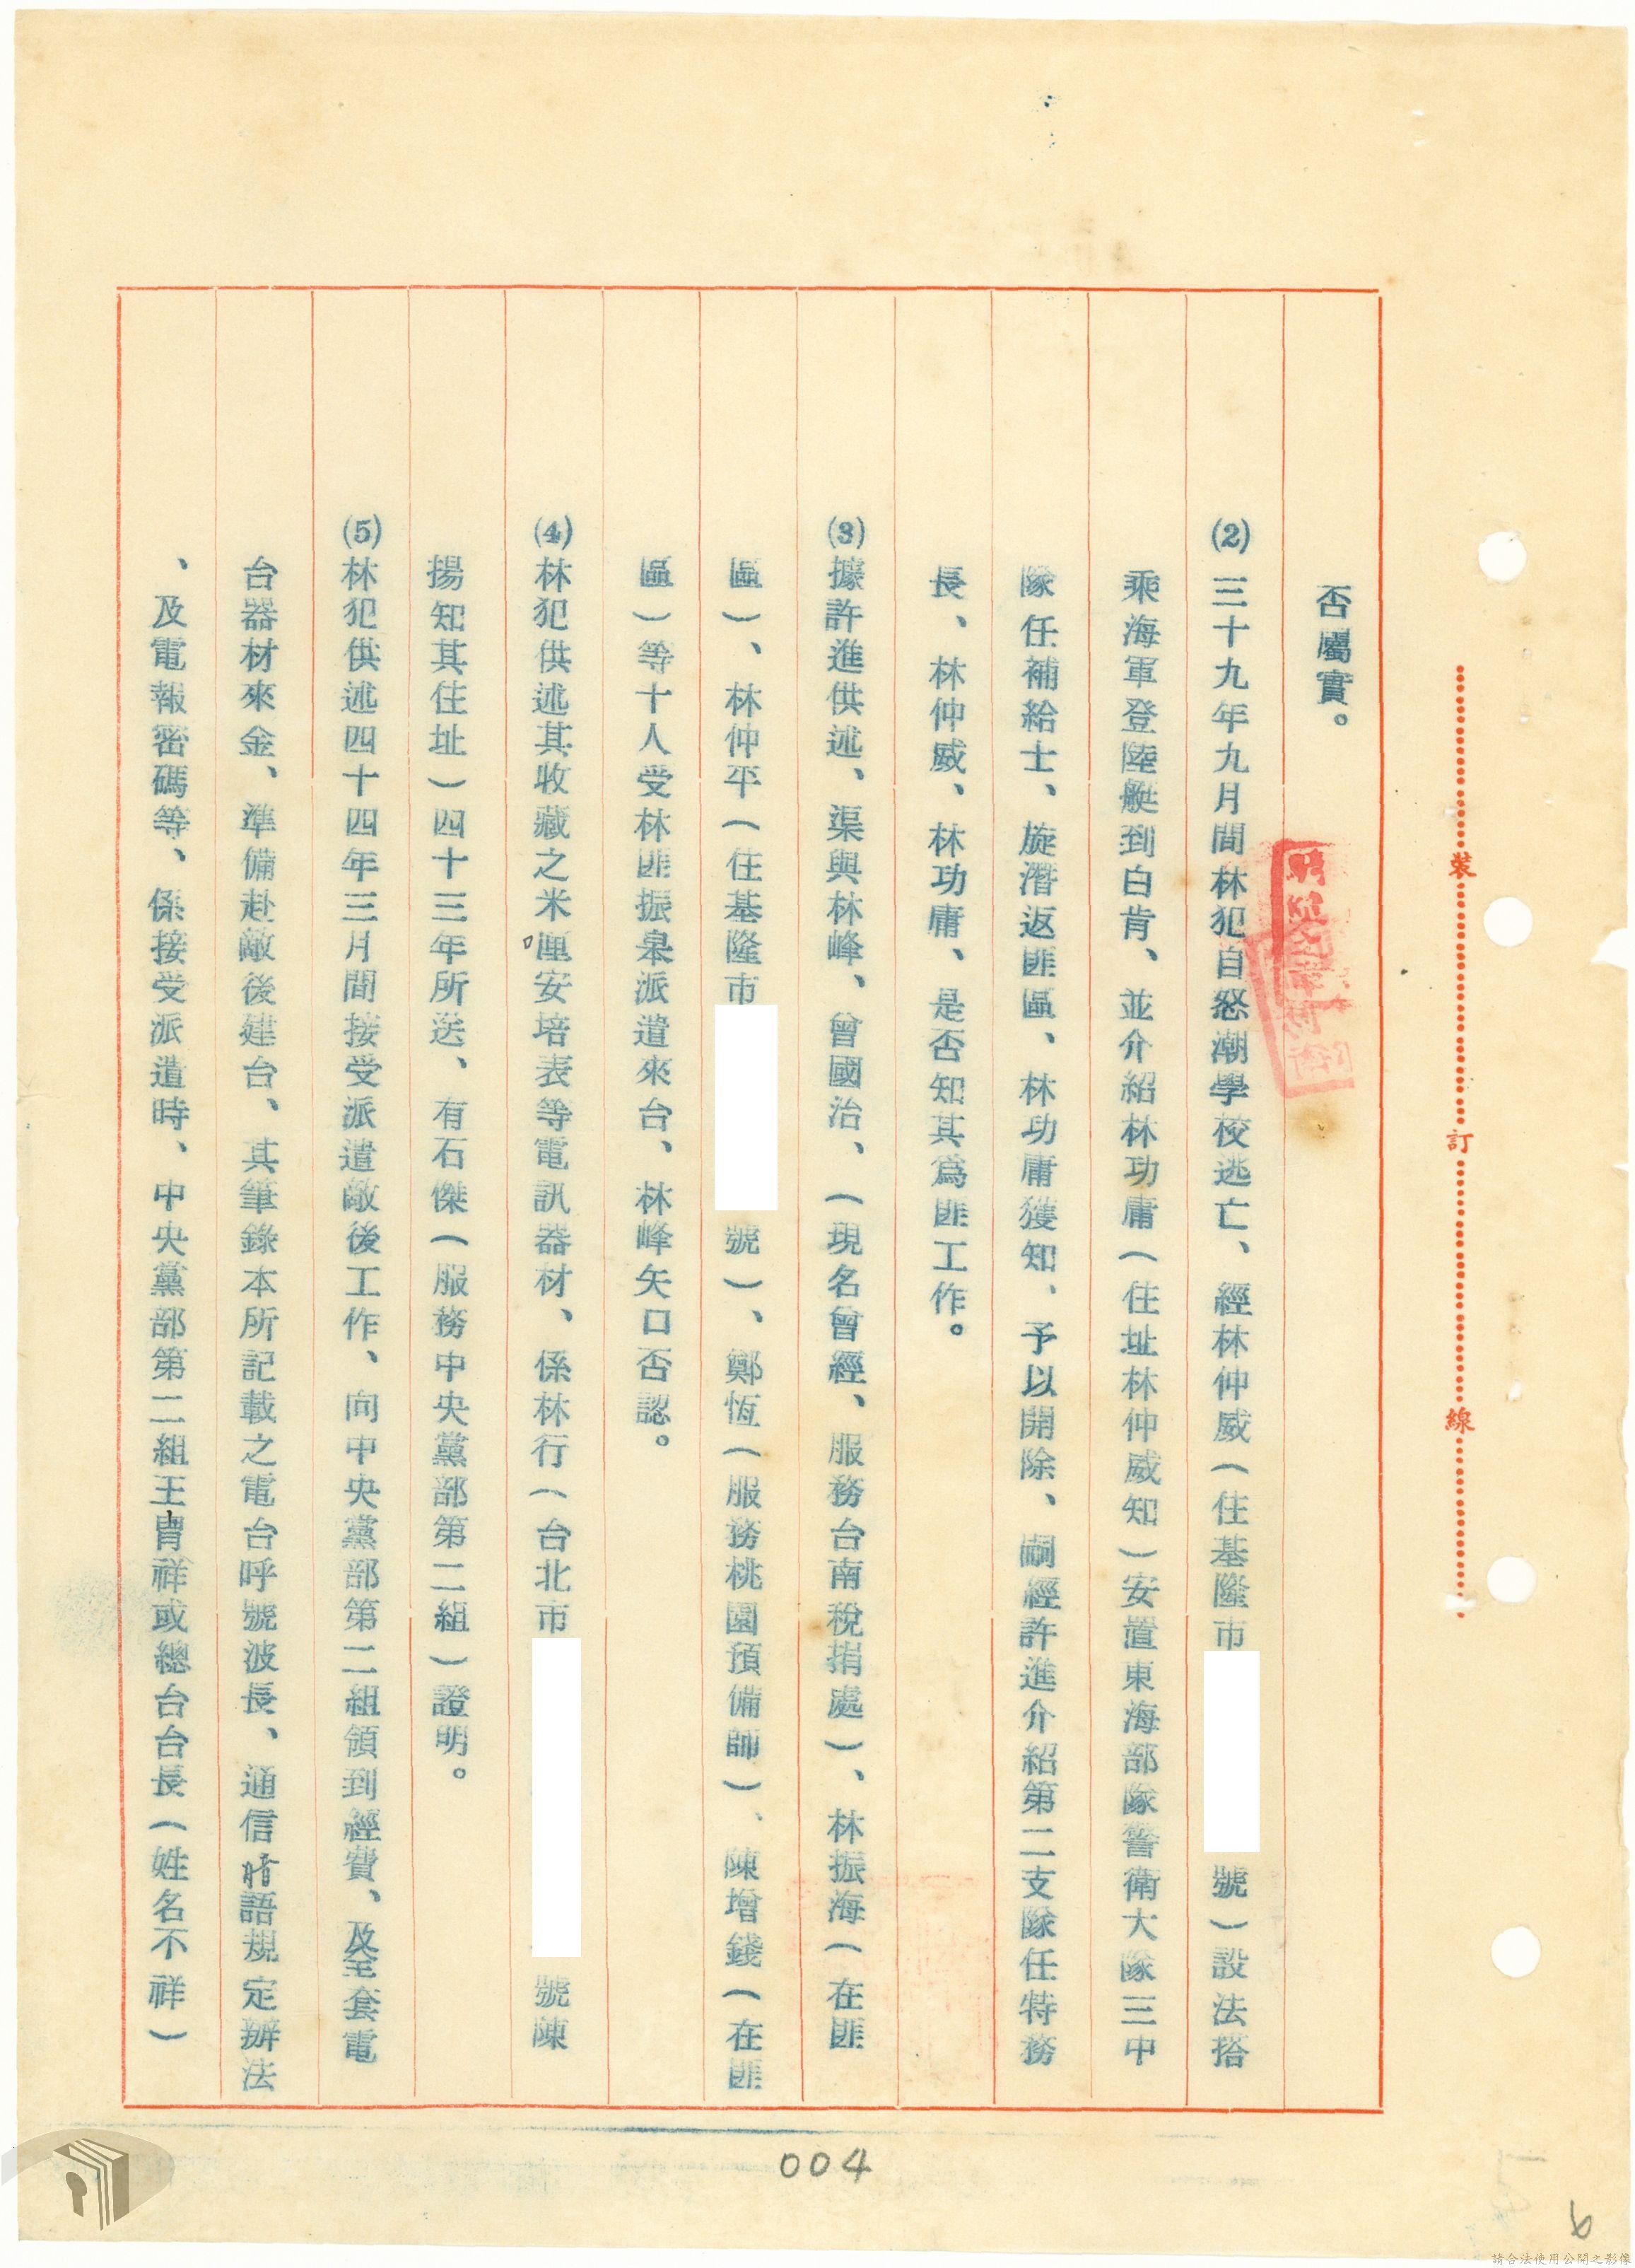 否屬實。
(2)三十九年九月間林犯自怒潮學校逃亡、經林仲威(住基隆市 號)設法搭
乘海軍登陸艇到白肯、並介紹林功庸(住址林仲威知)安置東海部隊警衛大隊三中
隊任補給士、旋潛返匪區、林功庸獲知、予以開除、嗣經許進介紹第二支隊任特務
長、林仲威、林功庸、是否知其為匪工作。
(3)據許進供述、渠與林峰、曾國治、(現名曾經、服務台南稅捐處)、林振海(在匪
區)、林仲平(住基隆市 號)、鄭恆(服務桃園預備師)、陳增錢(在匪
區)等十人受林匪振泉派遣來台、林峰矢口否認。
(4)林犯供述其收藏之米厘安培表等電訊器材、係林行(台北市 號陳
揚知其住址)四十三年所送、有石傑(服務中央黨部第二組)證明。
(5)林犯供述四十四年三月間接受派遣敵後工作、向中央黨部第二組領到經費、及全套電
台器材來金、準備赴敵後建台、其筆錄本所記載之電台呼號波長、通信暗語規定辦法
、及電報密碼等、係接受派遣時、中央黨部第二組王胄祥或總台台長(姓名不祥)
裝
訂
線
004
6
請合法使用公開之影像